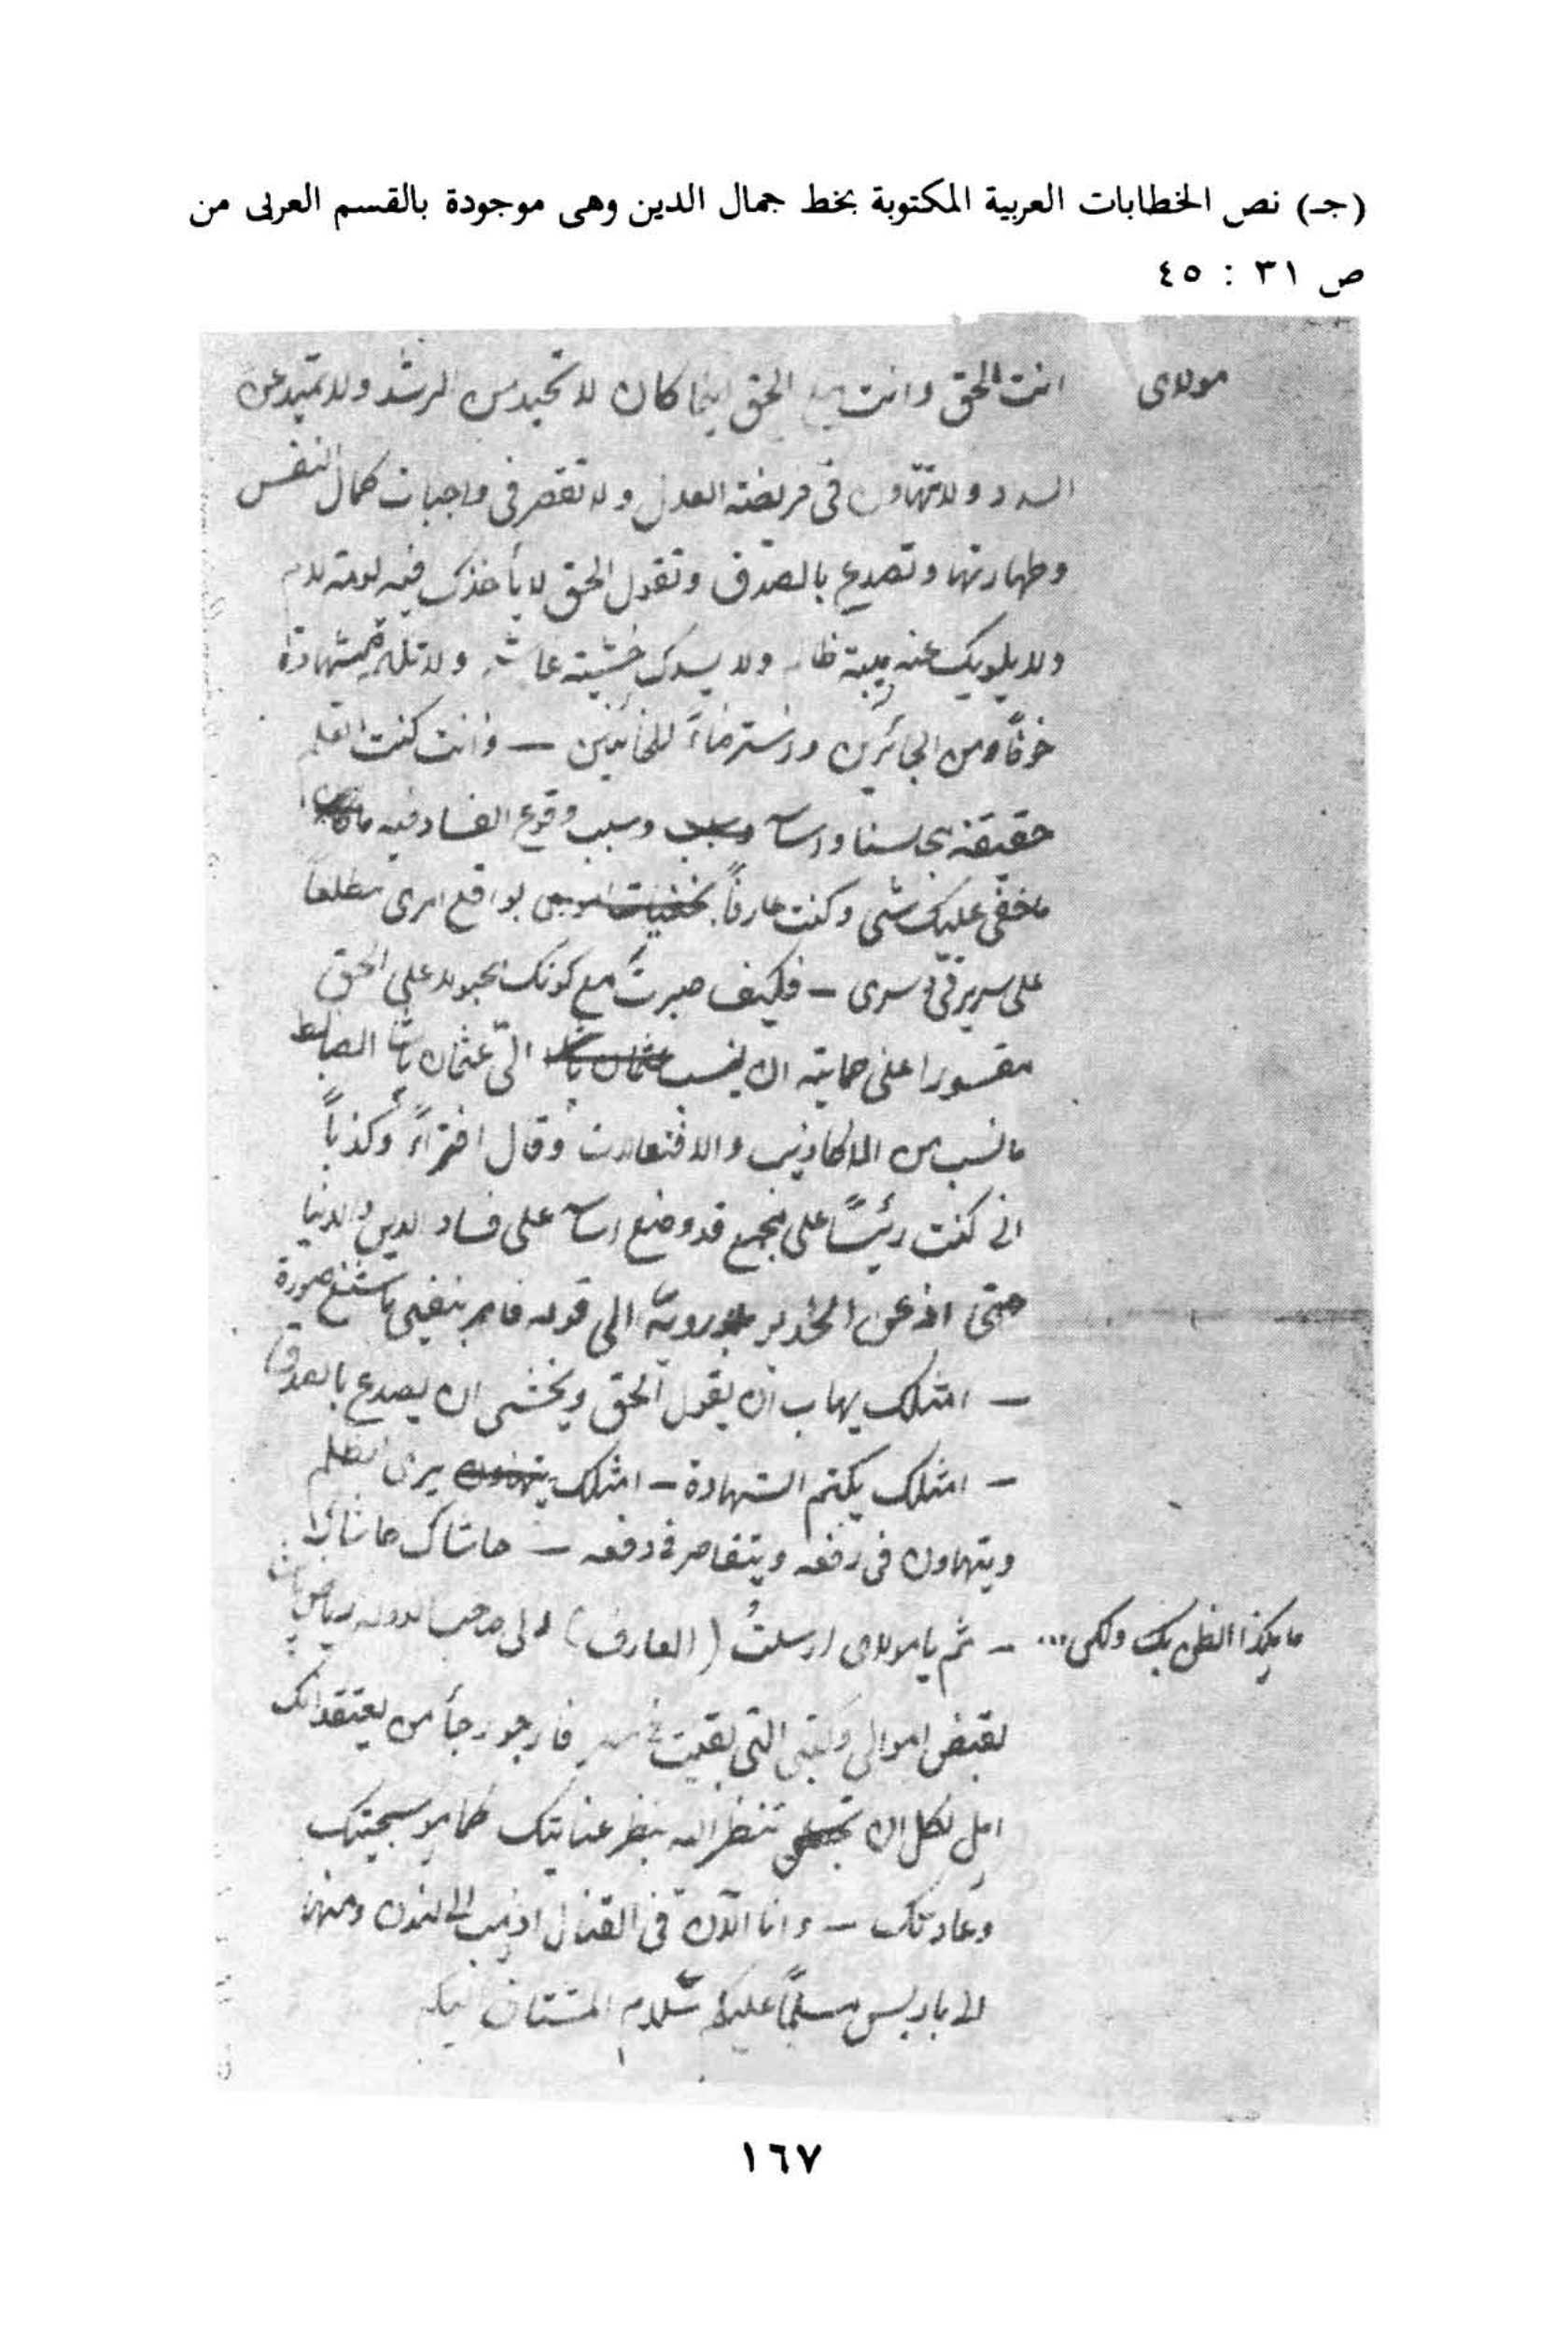 (جـ) نص الخطابات العربية المكتوبة بخط جمال الدين وهى موجودة بالقسم العربى من
ص ٣١ : ٤٥
مولاى انت الحق وانت مع الحق اينما كان لا تحيد من الرشد ولا تميد عن
السداد ولا تتهاون فى فريضة العدل ولا تقصر فى واجبات كمال النفس
وطهارتها وتصدع بالصدق وتقول الحق لا يأخذك فيه لومة لائم
ولا يلويك عنه هيبة ظالم ولا خشيته ولا الشهادة
خوفًا من الجائرين واسترضاءً للخائنين – وانت كنت تعلم
حقيقة مجلسنا واساسه وسبب وقوع الفساد فيه
ما خفى عليك شى وكنت عارفاً بواقع امرى مطلعاً
على سريرتى وسرى – فكيف صبرتَ مع كونك مجبولا على الحق
مقسورا على حمايته ان ينسب الىّ عثمان باشا الضابط
ما نسب من الاكاذيب والافتعالات وقال افتراءً وكذباً
انى كنت رئيسًا على مجمع قد وضع اساسه على فساد الدين والدنيا
حتى اذعن الخديو بلا رويّة الى قوله فامر بنفيى باشنع صورة
– امثلك يهاب ان يقول الحق ويخشى ان يصدع بالصدق
– امثلك يكتم الشهادة – امثلك يرى الظلم
ويتهاون فى رفعه ويتقاصر فى دفعه – حاشاك حاشاك
ما هكذا الظن بك ولكن... – ثم يا مولاى ارسلتُ (العارف) الى صاحب الدولة رياض باشا
لقبض اموالى وكتبى التى بقيت فى مصر فارجو رجأ من يعتقد انك
امل لكل ان تنظر اليه بنظر عنايتك كما هو سجيتك
وعادتك – وانا الآن فى القنال اذهب الى لندن ومنها
الى باريس مسلّماً عليكم سلام المشتاق اليكم
١٦٧